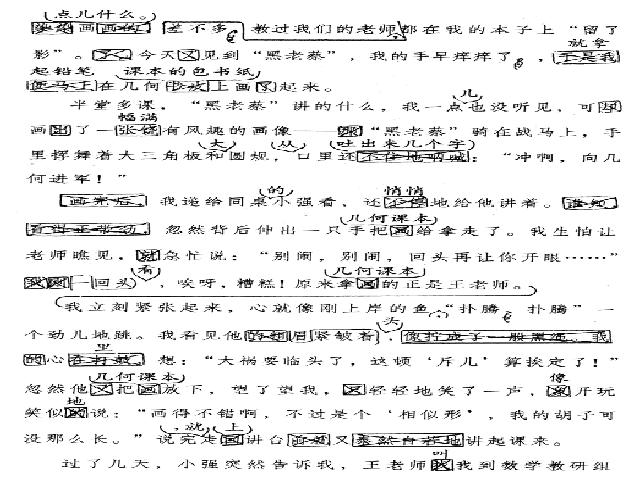 点儿什么。
画画的。差不多教过我们的老师都在我的本子上“留了
就拿
影”。今天又见到“黑老蔡”，我的手早痒痒了，于是我
起铅笔 课本的包书纸
便马上在几何书皮上画了起来。
儿
半堂多课，“黑老蔡”讲的什么，我一点也没听见，可
幅满
画出了一张饶有风趣的画像——“黑老蔡”骑在战马上，手
大 从 吐出来几个字
里挥舞着大三角板和圆规，口里还不住地呐喊：“冲啊，向几
何进军！”
的 悄悄
画完后，我递给同桌小强看，还不停地给他讲着。谁知
几何课本
忽然背后伸出一只手把画给拿走了。我生怕让
老师瞧见，急忙说：“别闹，别闹，回头再让你开眼……”
有 几何课本
一回头，哎呀，糟糕！原来拿画的正是王老师。
我立刻紧张起来，心就像刚上岸的鱼“扑腾 扑腾”一
大
个劲儿地跳。我看见他的粗眉紧皱着，像拧成了一股黑绳。我
里
的心在打鼓，想：“大祸要临头了，这顿‘斥儿’算挨定了！”
几何课本 像
忽然他又把画放下，望了望我，又轻轻地笑了一声，开玩
地
笑似的说：“画得不错啊，不过是个‘相似形’，我的胡子可
，就 上
没那么长。”说完走回讲台前又泰然自若地讲起课来。
叫
过了几天，小强突然告诉我，王老师找我到数学教研组